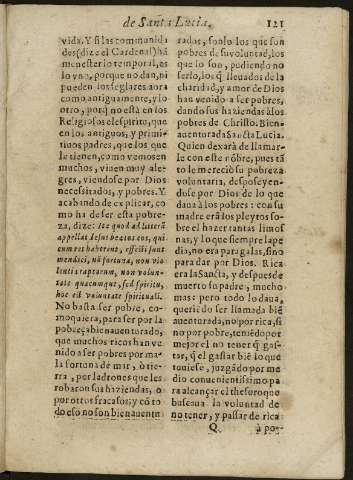 de Santa Lucia. 121
vida. Y si las communida
des (dize el Cardenal) hã
menester lo temporal, es
lo vno, porque no dan, ni
pueden los seglares aora
como antiguamente, y lo
otro, porq̃ no està en los
Religiosos el espiritu, que
en los antiguos, y primi-
tiuos padres, que los que
le tienen, como vemos en
muchos, viuen muy ale-
gres, viendose por Dios
necessitados, y pobres. Y
acabando de explicar, co
mo ha de ser esta pobre-
za, dize: Ita quod ad litterã
appellat
cumresbabuerint, effecti sunt
mendici, nõ fortuna, non vio
lenti raptarum, non volun-
tate quacumque, sed spiritu,
hoc est voluntate spirituali.
No basta ser pobre, co-
moquiera, para ser por la
pobreça bienauenturado,
que muchos ricos han ve
nido a ser pobres por ma
la fortuna de mar, ò tie-
rra, per ladrones que les
robaron sus haziendas, ò
por ottos fracasos; y cõ to
do eso no son bienauentu
radas, sonlo los que son
pobres de su voluntad, los
que lo son, pudiendo no
serlo, los q̃ lleuados de la
charidad, y amor de Dios
han venido a ser pobres,
dando sus haziendas à los
pobres de Christo. Bien-
auenturada Sancta Lucia.
Quien dexarà de llamar-
le con este nõbre, pues tã
to le mereciò su pobreza
voluntaria, desposeyen-
dose por Dios de lo que
daua à los pobres: con su
madre erã los pleytos so-
bre el hazer tantas limos
nas, y lo que siempre la pe
dia, no era para galas, sino
para dar por Dios. Rica
era la Sancta, y despues de
muerto su padre, mucho
mas: pero todo lo daua,
queriẽdo ser llamada biẽ
auenturada, no por rica, si
no por pobre, teniẽdo por
mejor el no tener q̃ gas-
tar, q̃ el gastar biẽ lo que
touiese, juzgãdo por me
dio conuenientissimo pa
ra alcançar el thesoro que
buscaua la voluntad de
no tener, y passar de rica
Q. à po-